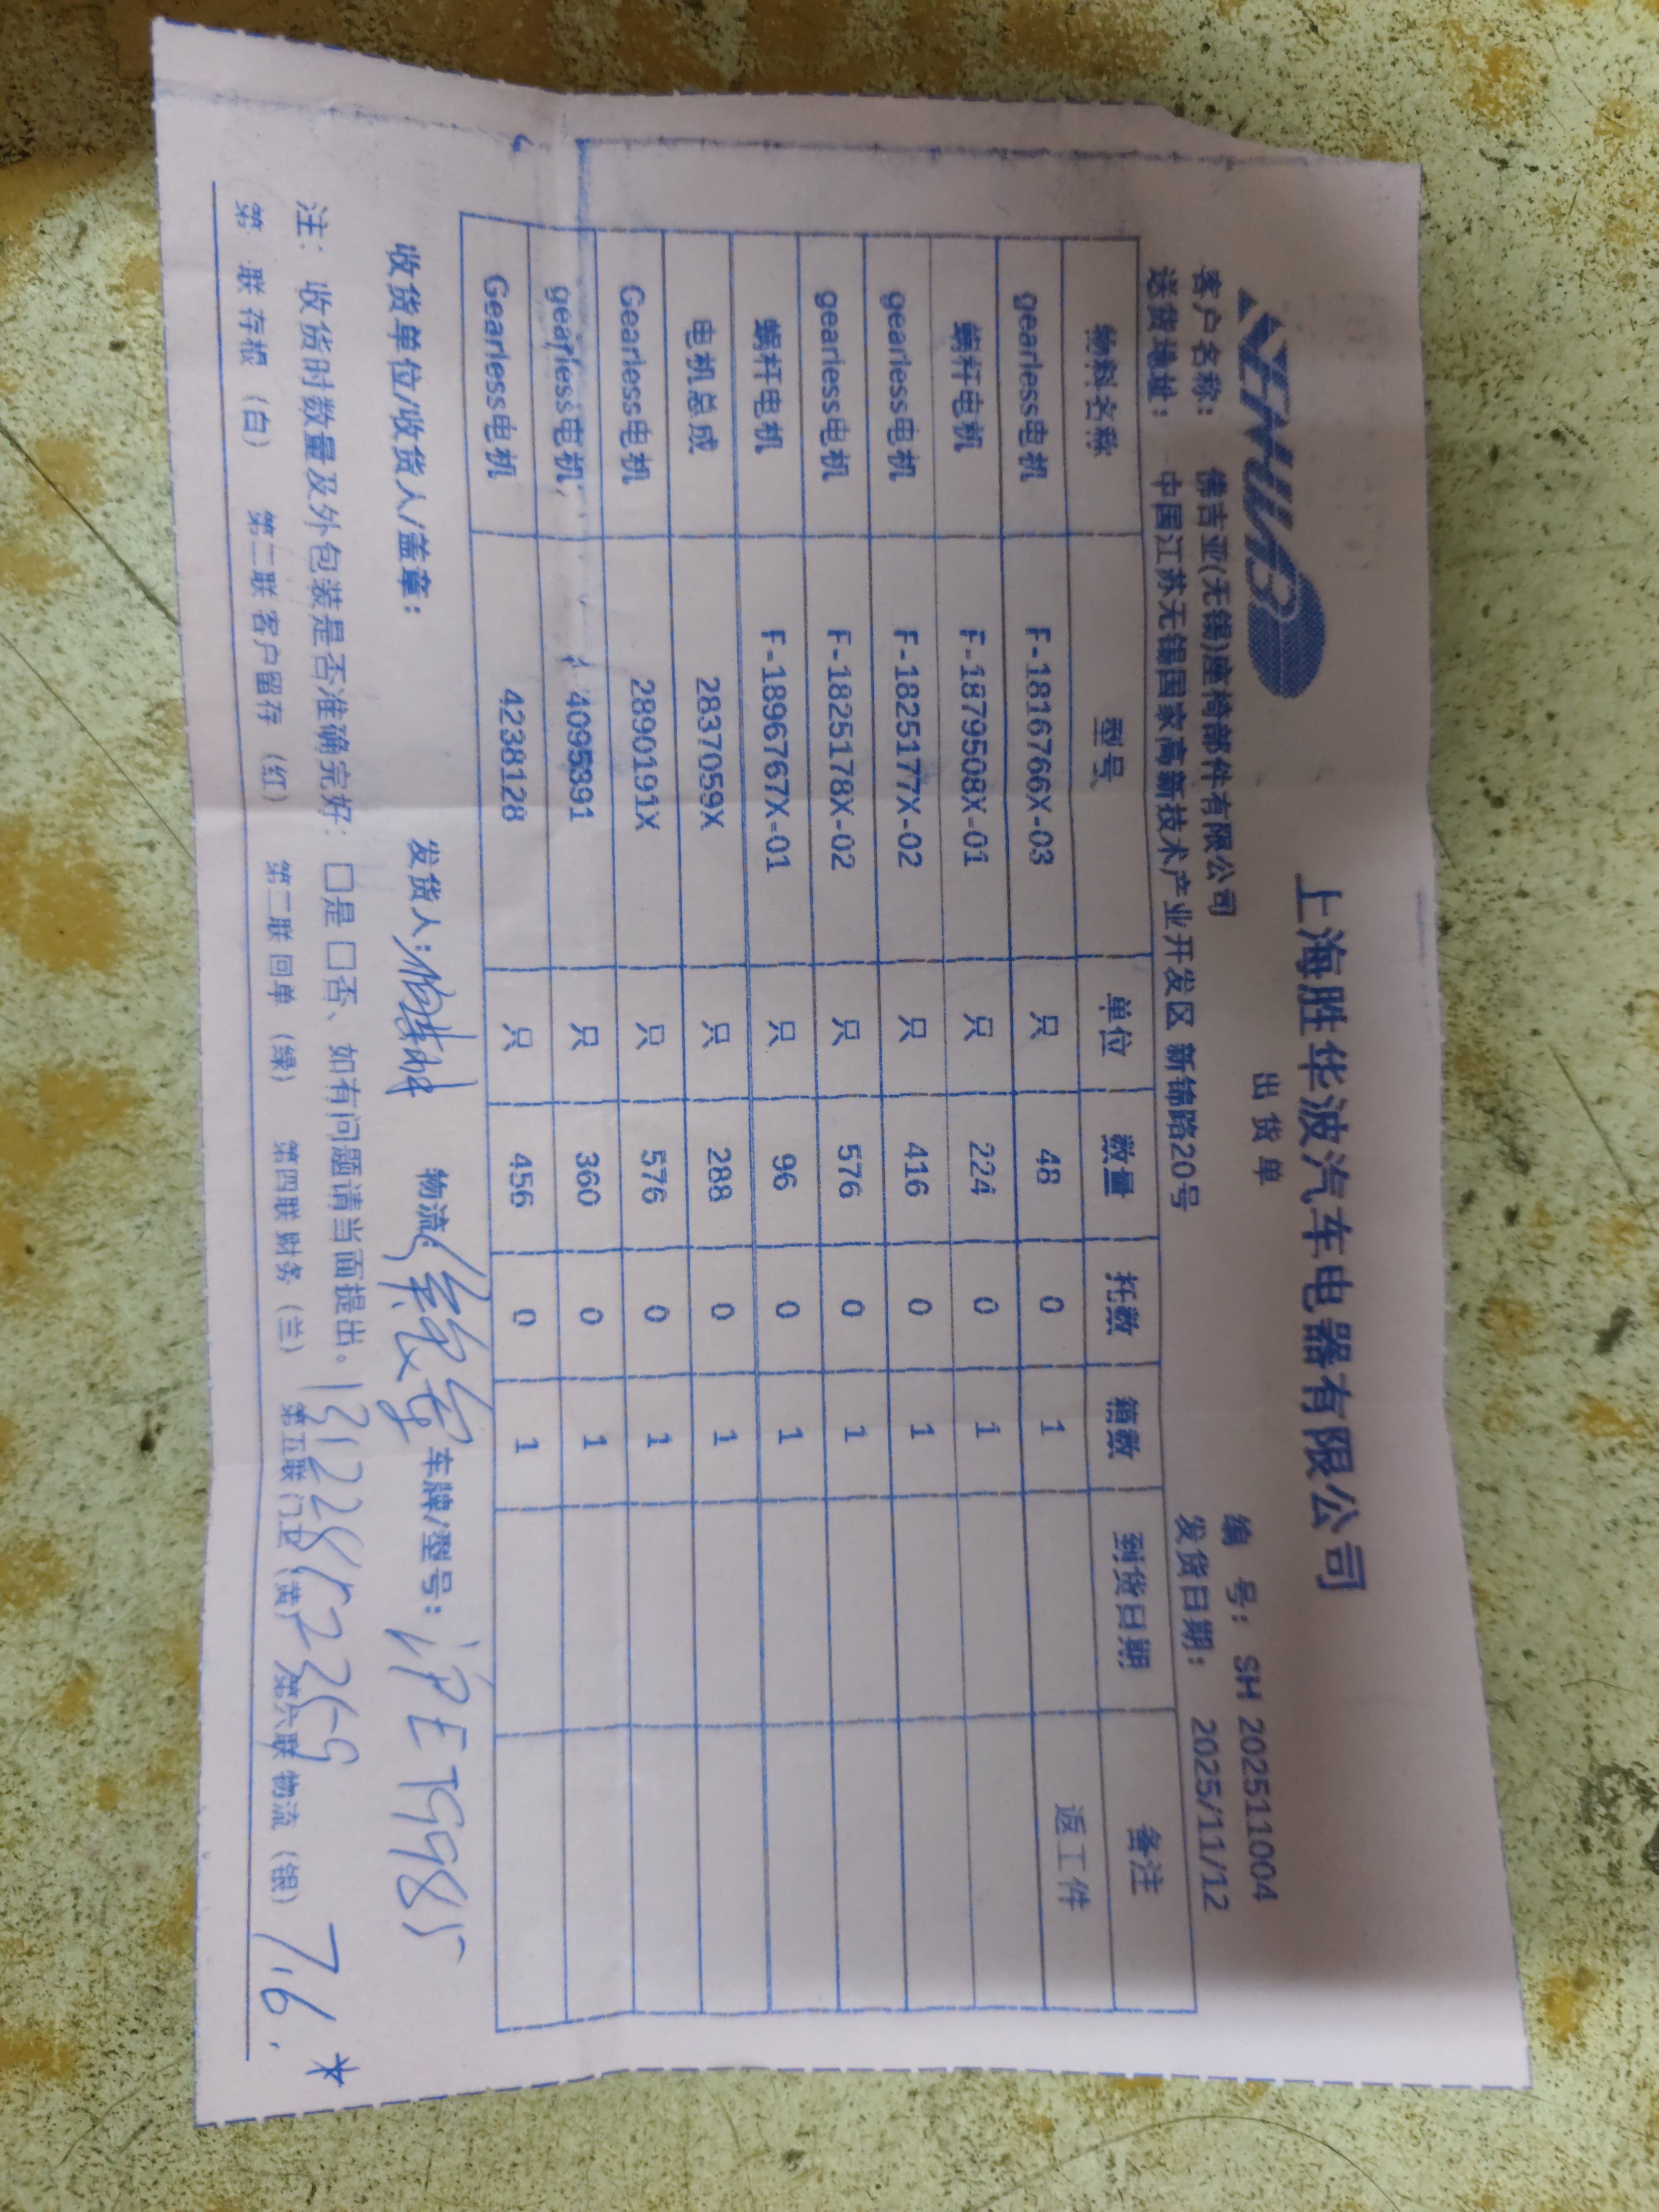 SHHUABO
上海胜华波汽车电器有限公司
出 货 单
编 号： SH 202511004
客户名称： 佛吉亚(无锡)座椅部件有限公司
发货日期： 2025/11/12
送货地址： 中国江苏无锡国家高新技术产业开发区 新锦路20号
物料名称 型号 单位 数量 托数 箱数 到货日期 备注
gearless电机 F-1816766X-03 只 48 0 1 返工件
蜗杆电机 F-1879508X-01 只 224 0 1
gearless电机 F-1825177X-02 只 416 0 1
gearless电机 F-1825178X-02 只 576 0 1
蜗杆电机 F-1896767X-01 只 96 0 1
电机总成 2837059X 只 288 0 1
Gearless电机 2890191X 只 576 0 1
gearless电机 4095391 只 360 0 1
Gearless电机 4238128 只 456 0 1
收货单位/收货人/盖章： 发货人： 物流 车牌/型号：沪ET9985
注： 收货时数量及外包装是否准确完好：□是□否、如有问题请当面提出。
第 联 存根 （白） 第二联 客户留存 （红） 第二联 回单 （绿） 第四联 财务 （兰） 第五联 门卫（黄） 第六联 物流 （银） 7.6. *